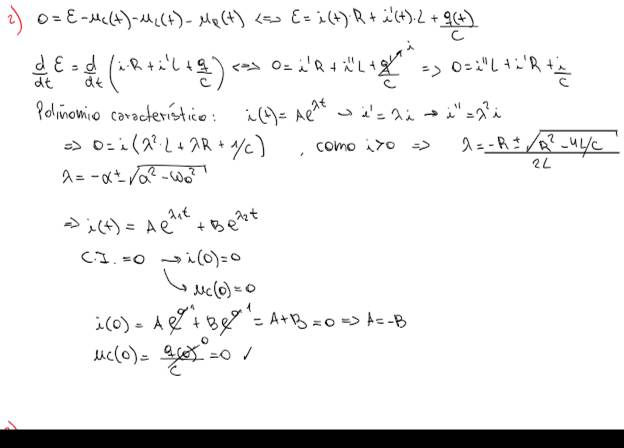 2) 0 = E - uc(t) - uL(t) - uR(t) <=> E = i(t)·R + i'(t)·L + q(t)/C
d/dt E = d/dt (i·R + i'L + q/C) <=> 0 = i'R + i''L + q'/C i => 0 = i''L + i'R + i/C
Polinomio característico: i(t) = Ae^λt → i' = λi → i'' = λ²i
=> 0 = i (λ²·L + λR + 1/C) , como i>0 => λ = -R ± √(R² - 4L/C) / 2L
λ = -α ± √(α² - ω0²)
=> i(t) = A e^λ1t + B e^λ2t
C.I. = 0 → i(0) = 0
↘ uc(0) = 0
i(0) = A e^0 1 + B e^0 1 = A + B = 0 => A = -B
uc(0) = q(0)/C 0 = 0 ✓